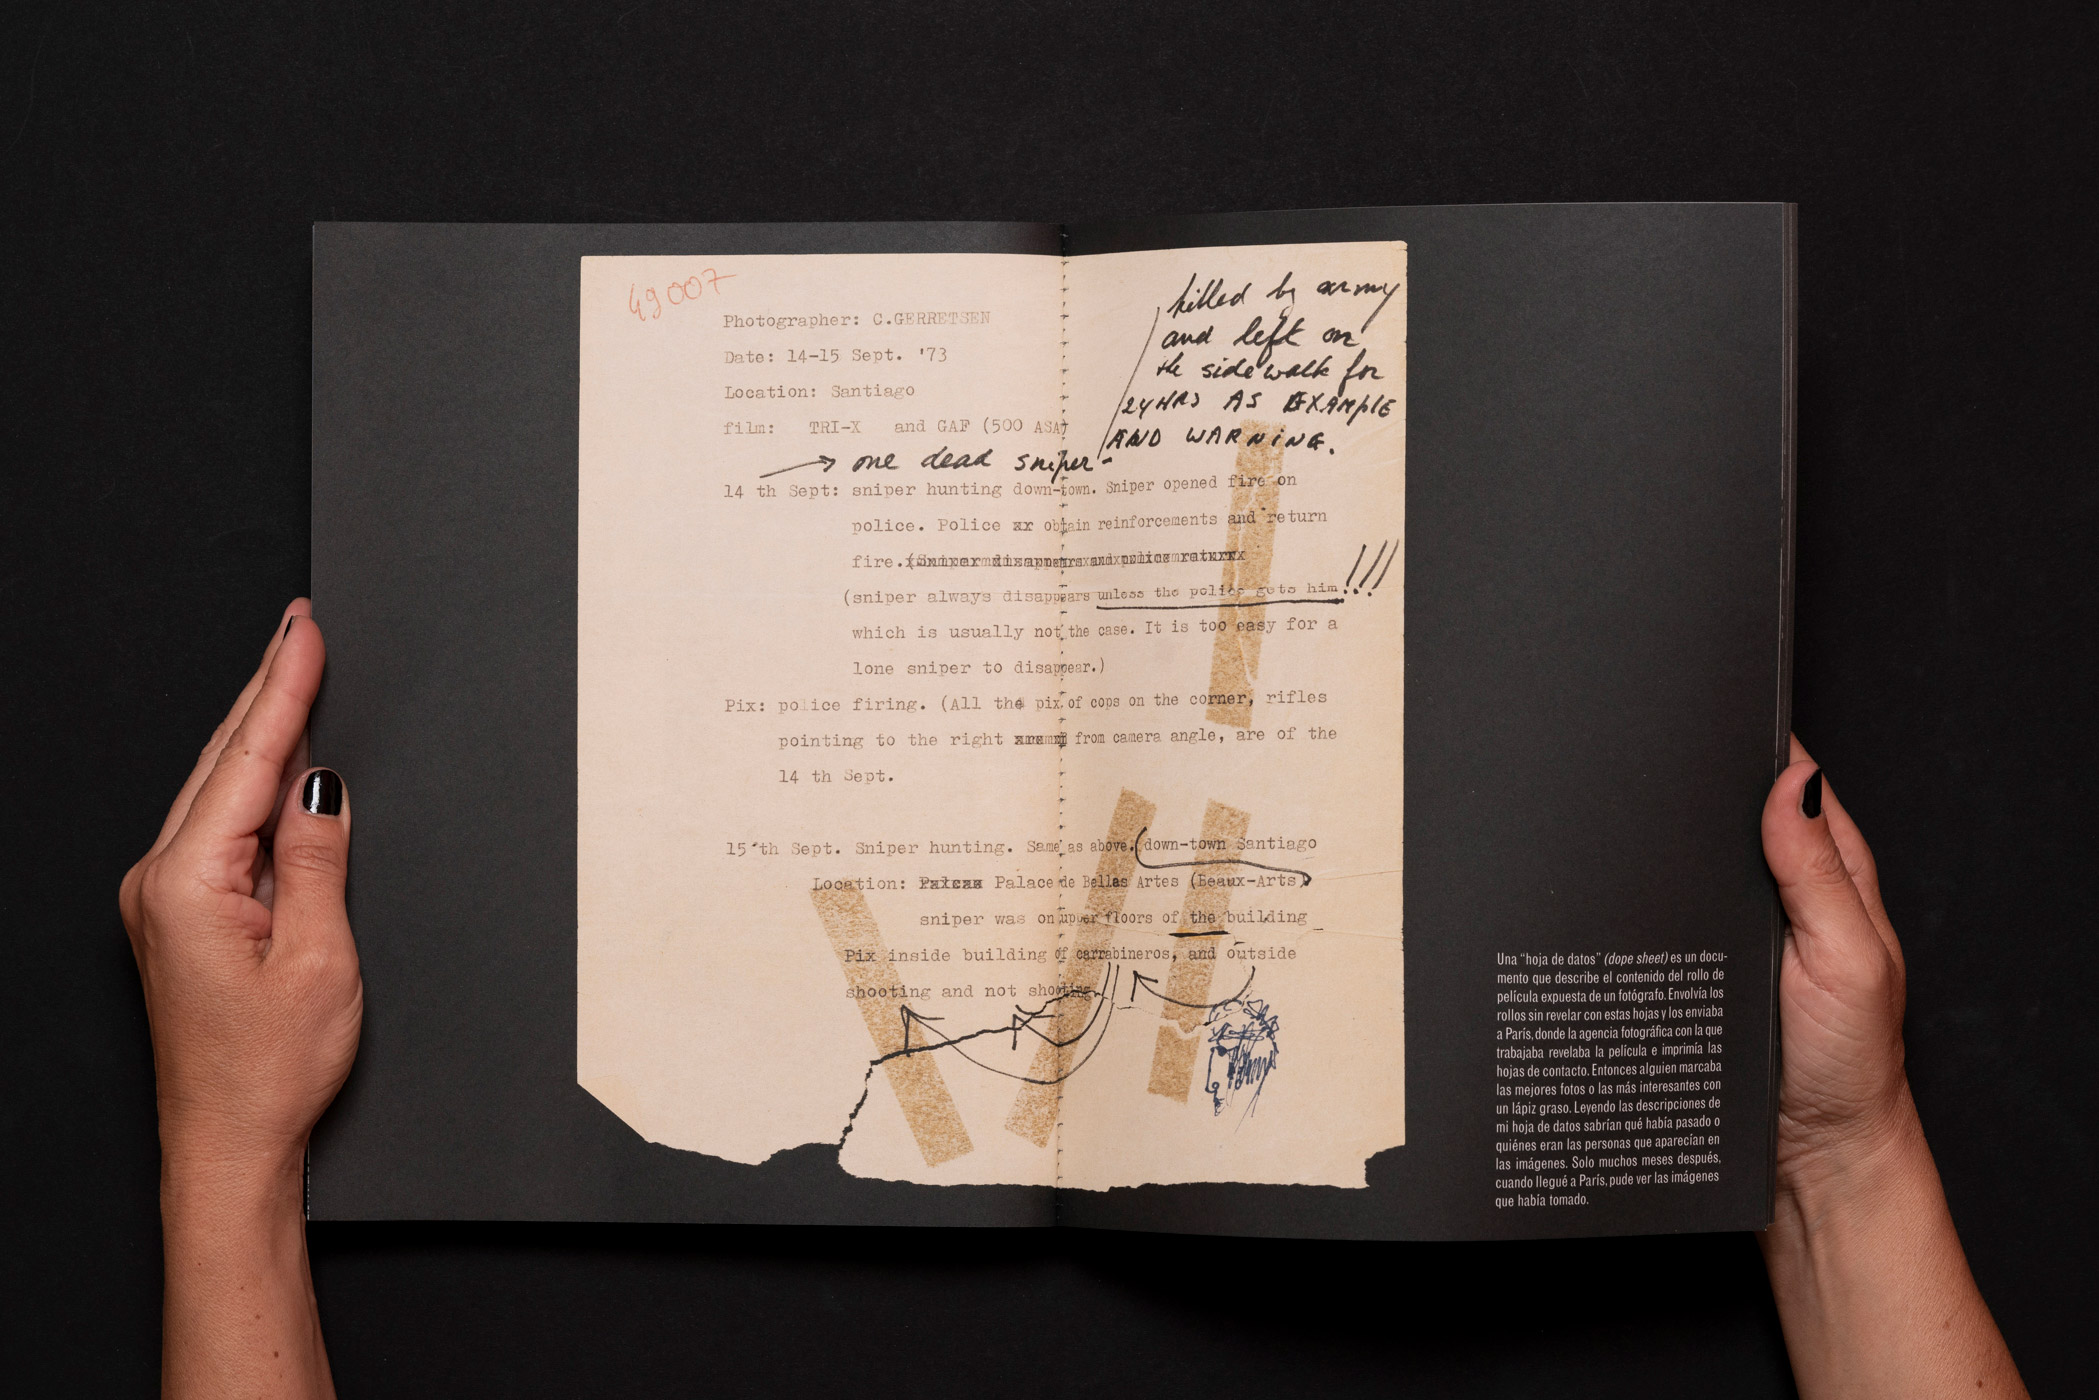 49007
killed by army
and left on
the sidewalk for
24HRS AS EXAMPLE
AND WARNING.
Photographer: C.GERRETSEN
Date: 14-15 Sept. '73
Location: Santiago
film: TRI-X and GAF (500 ASA)
→ one dead sniper-
14 th Sept: sniper hunting down-town. Sniper opened fire on
police. Police xx obtain reinforcements and return
fire. (Sniper disappears and police return
(sniper always disappears unless the police gets him!!!
which is usually not the case. It is too easy for a
lone sniper to disappear.)
Pix: police firing. (All the pix of cops on the corner, rifles
pointing to the right from camera angle, are of the
14 th Sept.
15 th Sept. Sniper hunting. Same as above. (down-town Santiago
Location: Palace de Bellas Artes (Beaux-Arts)
sniper was on upper floors of the building
Pix inside building of carrabineros, and outside
shooting and not shooting.
Una “hoja de datos” (dope sheet) es un docu-
mento que describe el contenido del rollo de
película expuesta de un fotógrafo. Envolvía los
rollos sin revelar con estas hojas y los enviaba
a París, donde la agencia fotográfica con la que
trabajaba revelaba la película e imprimía las
hojas de contacto. Entonces alguien marcaba
las mejores fotos o las más interesantes con
un lápiz graso. Leyendo las descripciones de
mi hoja de datos sabrían qué había pasado o
quiénes eran las personas que aparecían en
las imágenes. Solo muchos meses después,
cuando llegué a París, pude ver las imágenes
que había tomado.